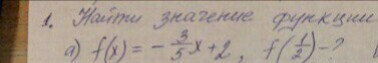 1. Найти значение функции
а) f(x) = - 3/5 x + 2, f(1/2) - ?